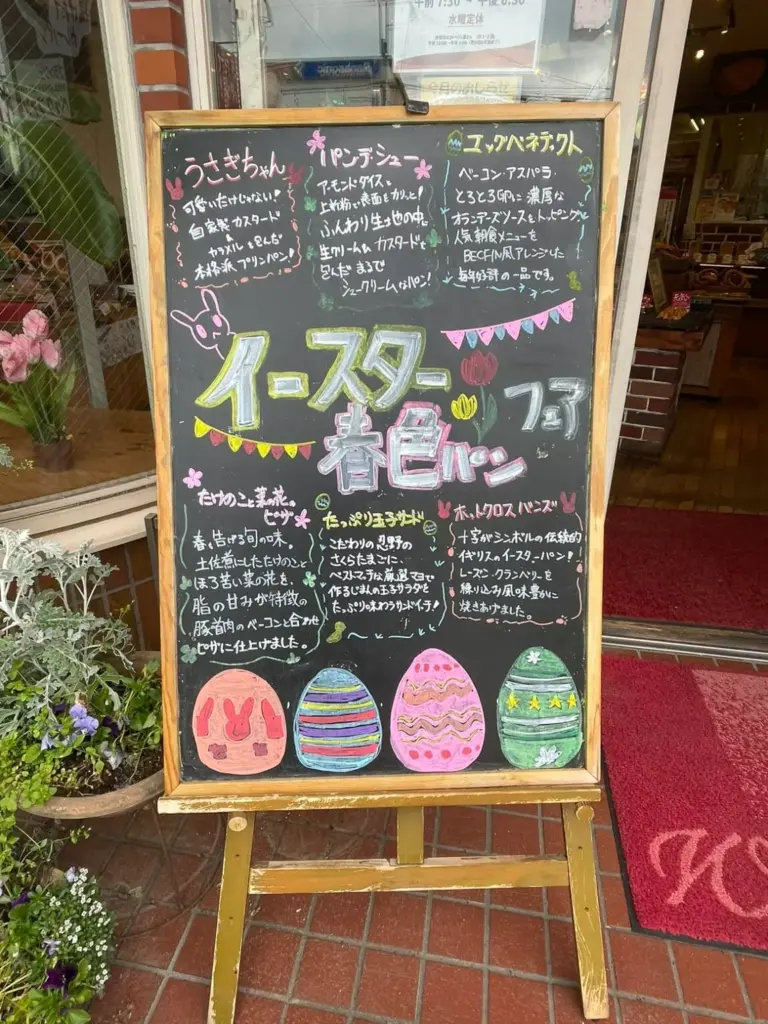 午前7:30~午後6:30
水曜定休
今月のおしらせ
うさぎちゃん
可愛いだけじゃない!
自家製カスタード
&
カラメルを包んだ
本格派プリンパン!
パンデシュー
アーモンドダイスと
上新粉で表面をカリッと!
ふんわり生地の中に
生クリーム カスタードを
包んだまるで
シュークリームなパン!
エッグベネディクト
ベーコン・アスパラ・
とろとろ卵に濃厚な
オランデーズソースをトッピング
人気朝食メニューを
BECFIN風アレンジした
毎年好評の一品です。
イースター
フェア
春色パン
たけのこと菜の花の
ピザ
春を告げる旬の味。
土佐煮にしたたけのこと
ほろ苦い菜の花を、
脂の甘みが特徴の
豚首肉のベーコンと合わせ
ピザに仕上げました。
たっぷり玉子サンド
こだわりの忍野の
さくらたまごに、
ベストマッチな厳選マヨで
作るじまんの玉子サラダを
たっぷり味わうサンドイチ!
ホットクロスバンズ
十字がシンボルの伝統的
イギリスのイースターパン!
レーズン・クランベリーを
練り込み風味豊かに
焼きあげました。
W